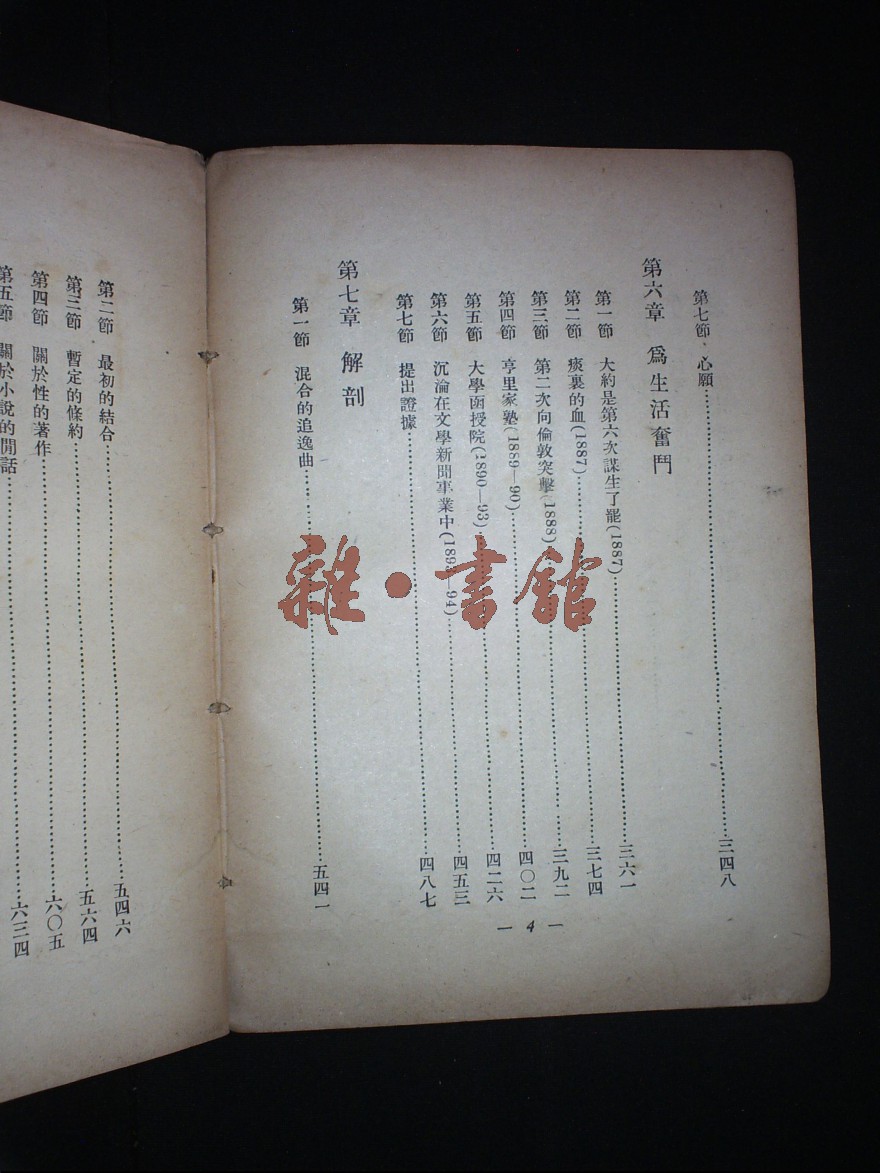 第七節、心願……三四八
第六章 爲生活奮鬥
第一節 大約是第六次謀生了罷(1887)……三六一
第二節 痰裏的血(1887)……三七四
第三節 第二次向倫敦突擊(1888)……三九二
第四節 亨里家塾(1889—90)……四〇二
第五節 大學函授院(1890—93)……四二六
第六節 沉淪在文學新聞事業中(1893—94)……四五三
第七節 提出證據……四八七
第七章 解剖
第一節 混合的追逸曲……五四一
— 4 —
第二節 最初的結合……五四六
第三節 暫定的條約……五六四
第四節 關於性的著作……六〇五
第五節 關於小說的閒話……六三四
雜·書館